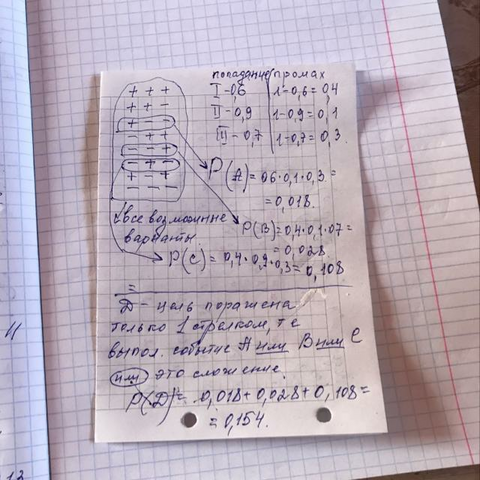 попадание промах
+ + +
I - 0,6 1-0,6 = 0,4
+ + -
II - 0,9 1-0,9 = 0,1
+ - -
III - 0,7 1-0,7 = 0,3
- + +
- - +
- + -
P(A) = 0,6·0,1·0,3 =
+ - +
= 0,018.
- - -
все возможные
варианты
P(B) = 0,4·0,1·0,7 =
= 0,028
P(C) = 0,4·0,9·0,3 = 0,108
=
Д - цель поражена
только 1 стрелком, т е
выпол. событие A или B или C
или это сложение.
P(Д) = 0,018 + 0,028 + 0,108 =
= 0,154.